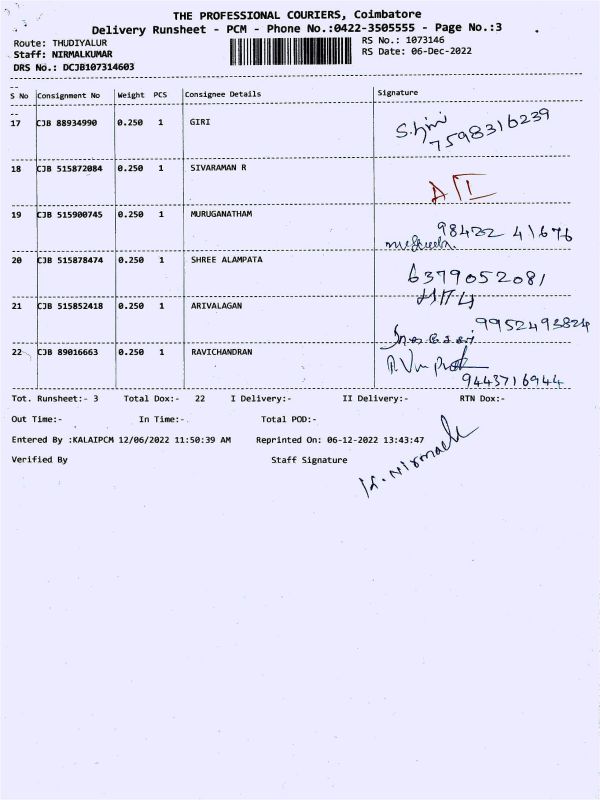 THE PROFESSIONAL COURIERS, Coimbatore
Delivery Runsheet - PCM - Phone No.:0422-3505555 - Page No.:3
Route: THUDIYALUR RS No.: 1073146
Staff: NIRMALKUMAR RS Date: 06-Dec-2022
DRS No.: DCJB107314603
S No Consignment No Weight PCS Consignee Details Signature
17 CJB 88934990 0.250 1 GIRI
7598316239
18 CJB 515872084 0.250 1 SIVARAMAN R
19 CJB 515900745 0.250 1 MURUGANATHAM
98422 41676
20 CJB 515878474 0.250 1 SHREE ALAMPATA
6379052081
21 CJB 515852418 0.250 1 ARIVALAGAN
9952493824
22 CJB 89016663 0.250 1 RAVICHANDRAN
9443716944
Tot. Runsheet:- 3 Total Dox:- 22 I Delivery:- II Delivery:- RTN Dox:-
Out Time:- In Time:-. Total POD:-
Entered By :KALAIPCM 12/06/2022 11:50:39 AM Reprinted On: 06-12-2022 13:43:47
Verified By Staff Signature